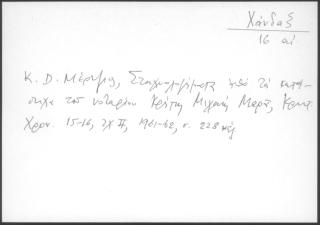 Χάνδαξ
16 αἰ
Κ. Δ. Μέρτζιος, Σταχυολογήματα ἀπὸ τὰ κατά-
στιχα τοῦ νοταρίου Κρήτης Μιχαὴλ Μαρᾶ, Κρητ.
Χρον. 15-16, τχ II, 1961-62, σ. 228 κἑξ